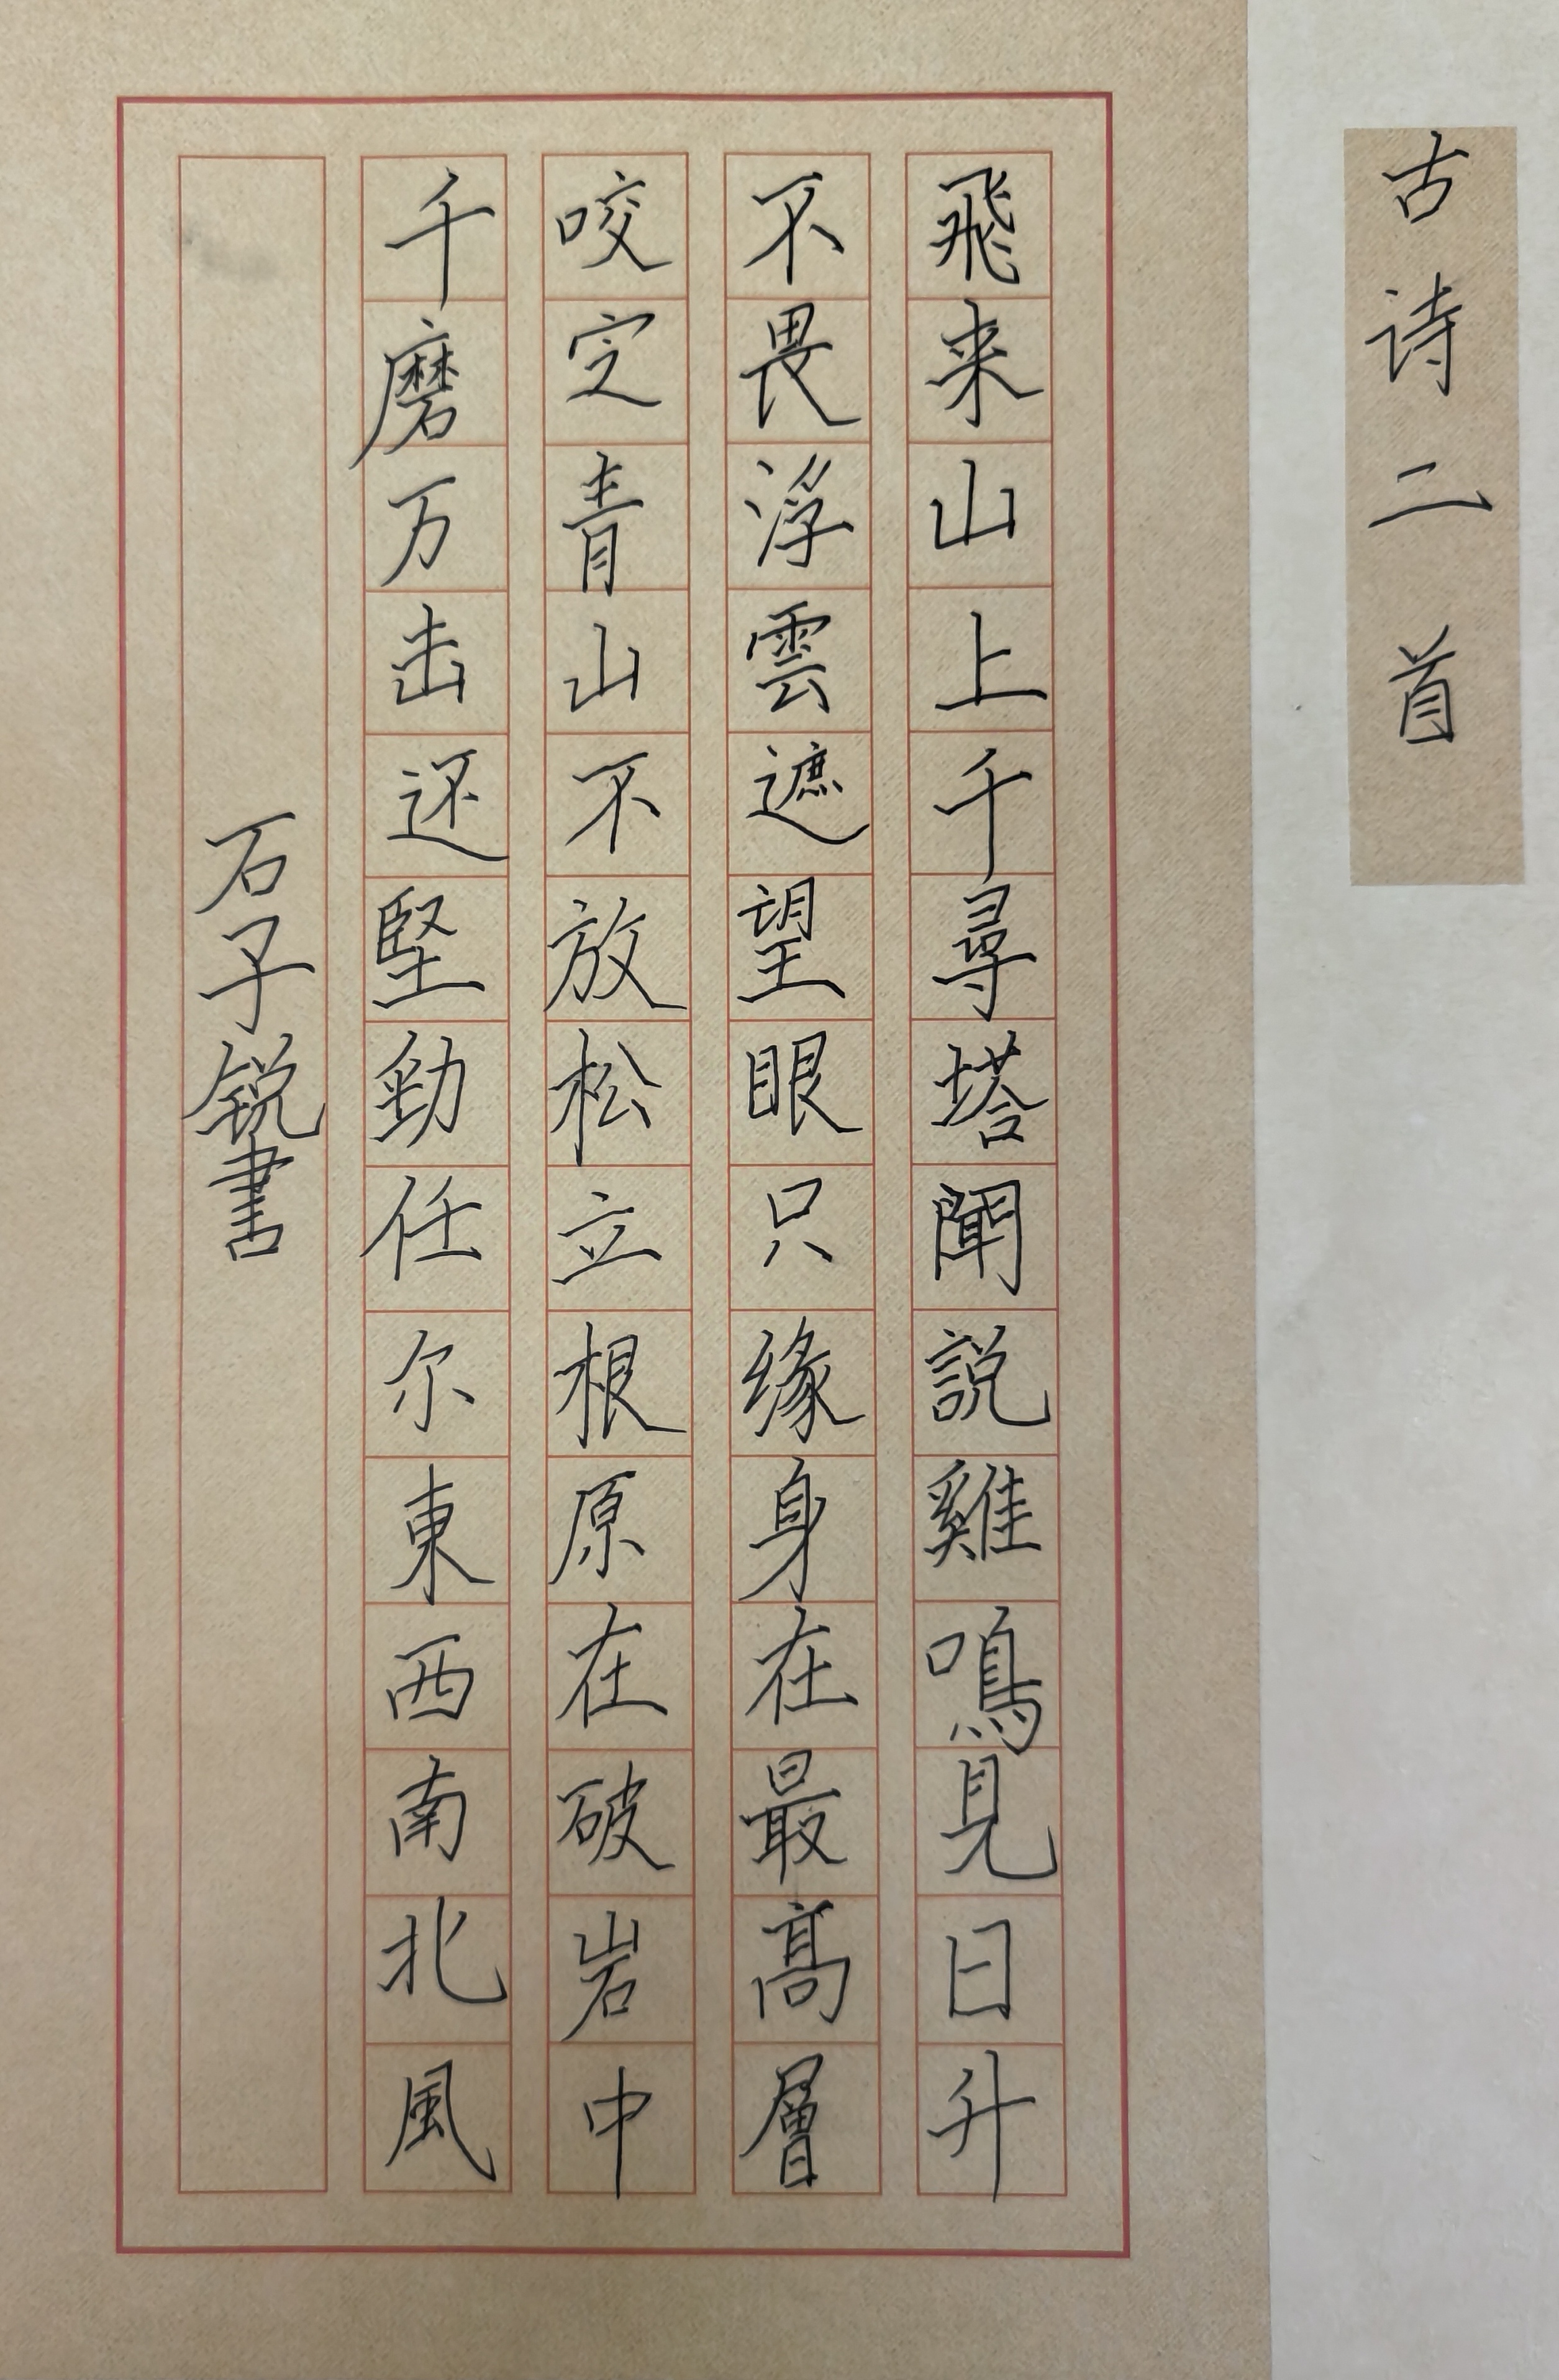 古诗二首
飛来山上千尋塔聞説雞鳴見日升
不畏浮雲遮望眼只缘身在最高層
咬定青山不放松立根原在破岩中
千磨万击还堅勁任尔東西南北風
石子锐書